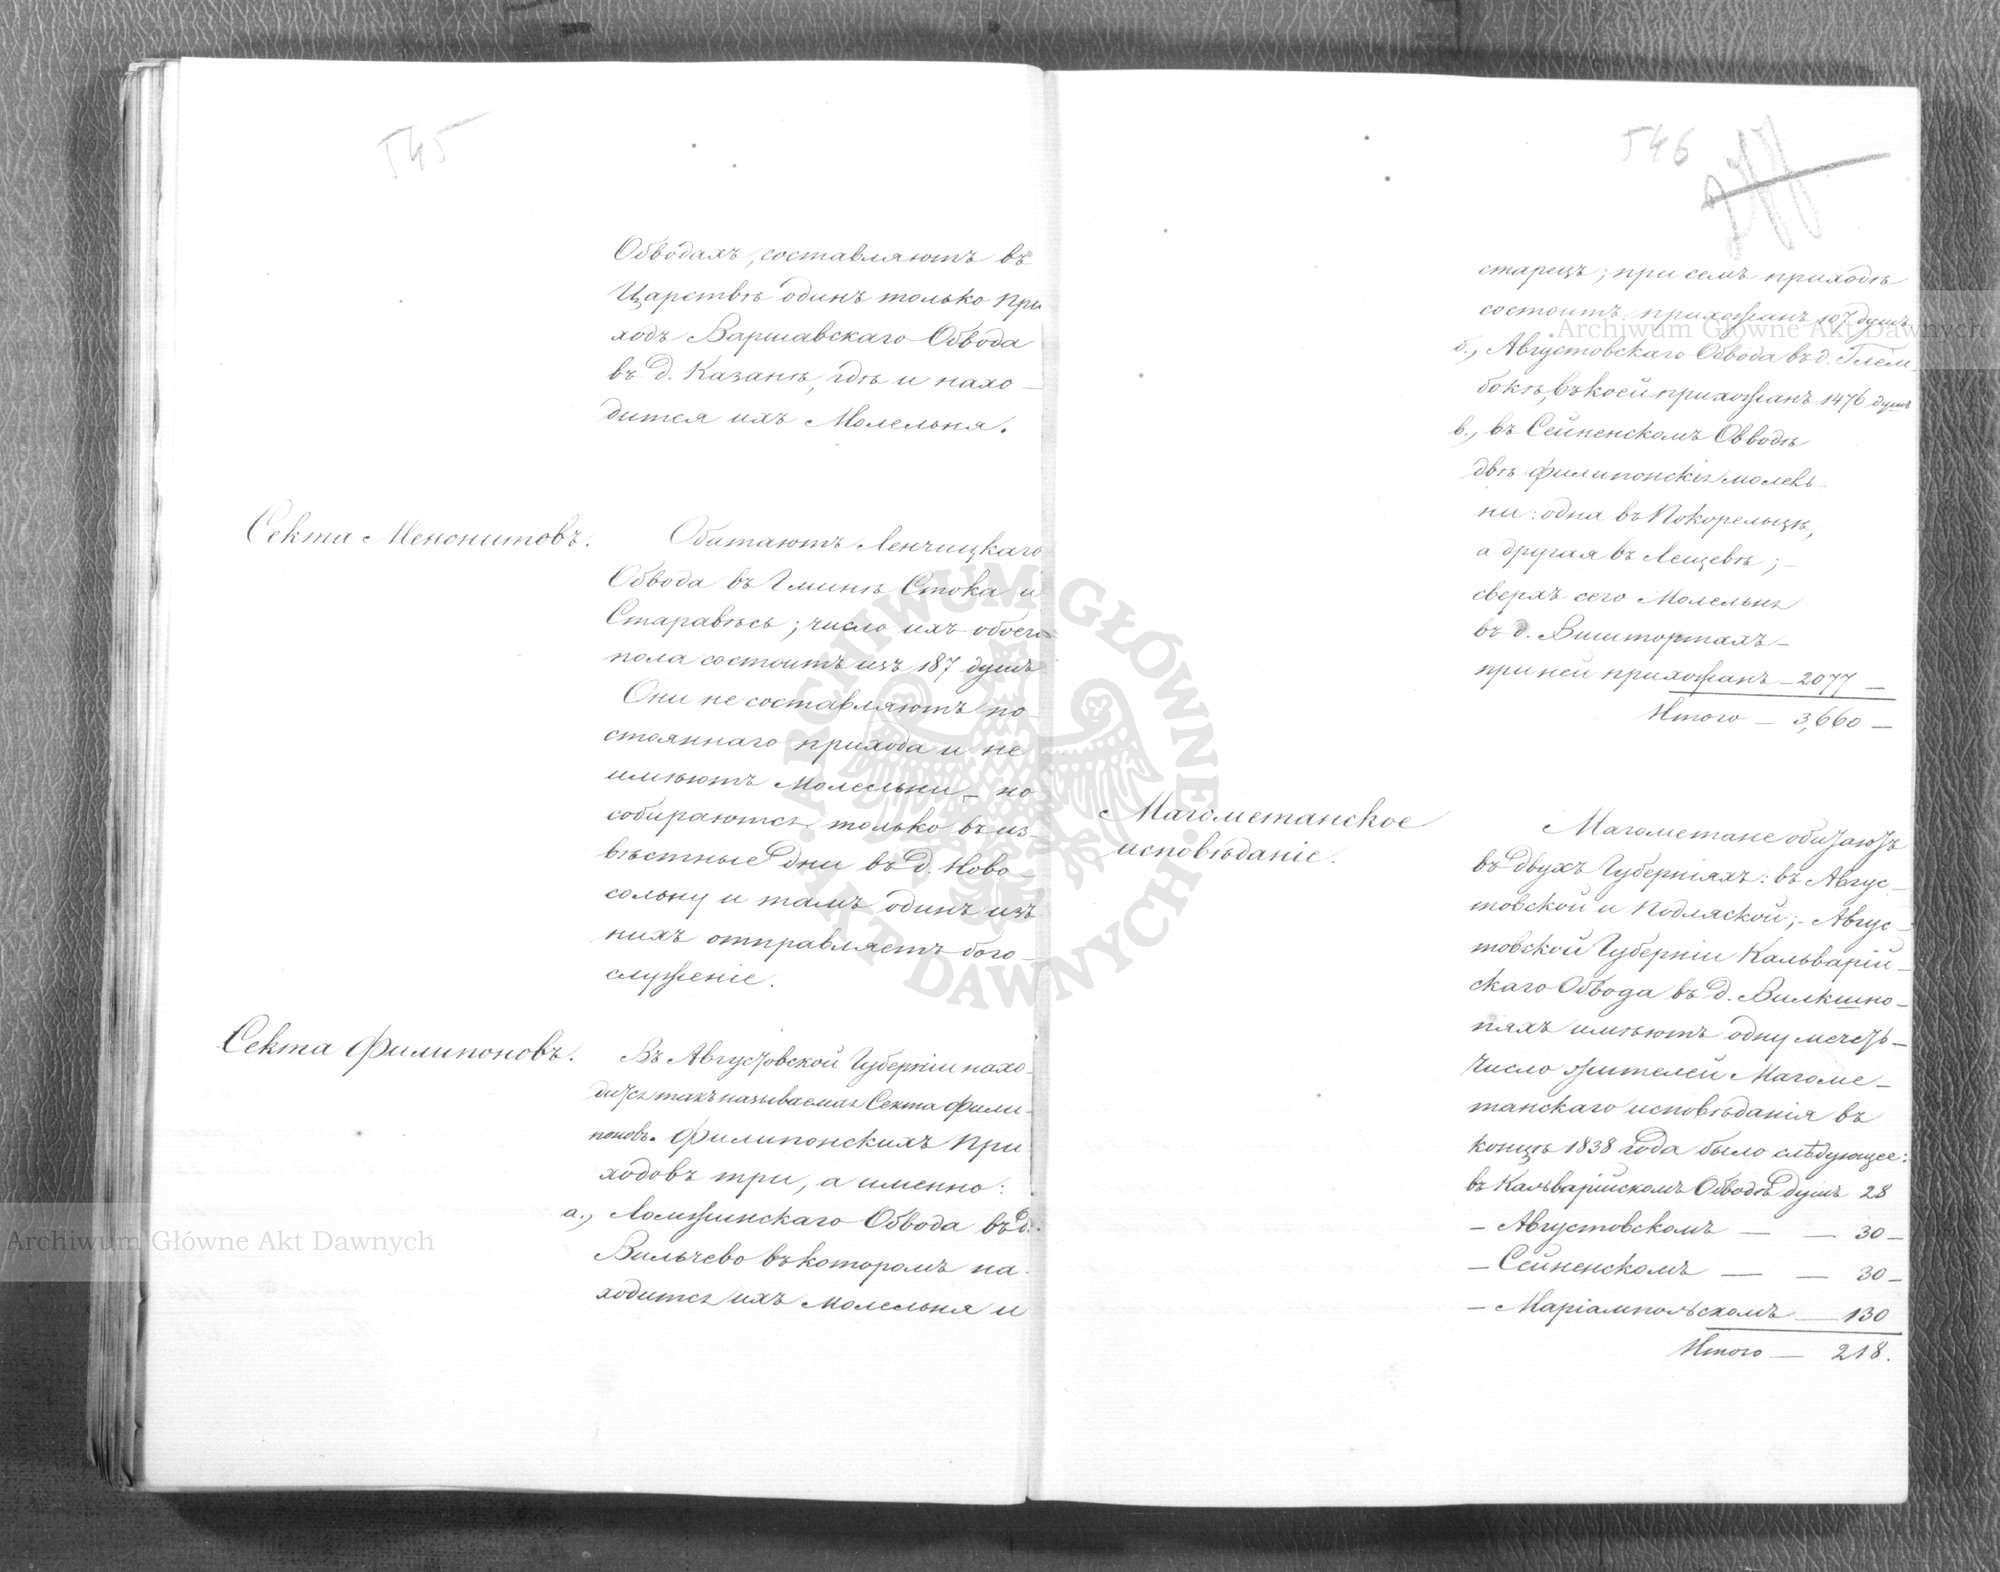 545
Обводахъ, составляютъ въ
Царствѣ одинъ только При
ходъ Варшавскаго Обвода
въ д. Казанѣ, гдѣ и нахо-
дится ихъ Молельня.
Секта Менонитовъ.
Обитаютъ Ленчицкаго
Обвода въ Гминѣ Стока и
Старавѣсь; число ихъ обоего
пола состоитъ изъ 187 душъ
Они не составляютъ по-
стояннаго прихода и не
имѣютъ Молельни - но
собираются только въ из-
вѣстные дни въ д. Ново-
сольну и тамъ одинъ изъ
нихъ отправляетъ бого-
служеніе.
Секта Филипоновъ.
Въ Августовской Губерніи нахо-
дится такъ называемая Секта Фили-
поновъ. Филипонскихъ При
ходовъ три, а именно:
а., Ломжинскаго Обвода въ д.
Вильчево въ которомъ на-
ходится ихъ Молельня и
546
277
старецъ; при семъ приходѣ
состоитъ прихожанъ 107 душъ
б., Августовскаго Обвода въ д. Глем-
бокѣ, въ коей прихожанъ 1476 душъ
в., въ Сейненскомъ Обводѣ
двѣ филипонскія молель-
ни: одна въ Покорельцѣ,
а другая въ Лещевѣ; -
сверхъ сего Молельня
въ д. Виштортахъ -
при ней прихожанъ - 2077 -
Итого - 3,660 -
Магометанское
исповѣданіе.
Магометане обитаютъ
въ двухъ Губерніяхъ: въ Авгус-
товской и Подляской; - Авгус-
товской Губерніи Кальварій-
скаго Обвода въ д. Вилкшно-
пяхъ имѣютъ одну мечеть -
Число жителей Магоме-
танскаго исповѣданія въ
концѣ 1838 года было слѣдующее:
въ Кальварійскомъ Обводѣ душъ 28
- Августовскомъ — — 30 -
- Сейненскомъ — — 30 -
- Маріампольскомъ — 130
Итого — 218.
Archiwum Główne Akt Dawnych
Archiwum Główne Akt Dawnych
ARCHIWUM GŁÓWNE AKT DAWNYCH